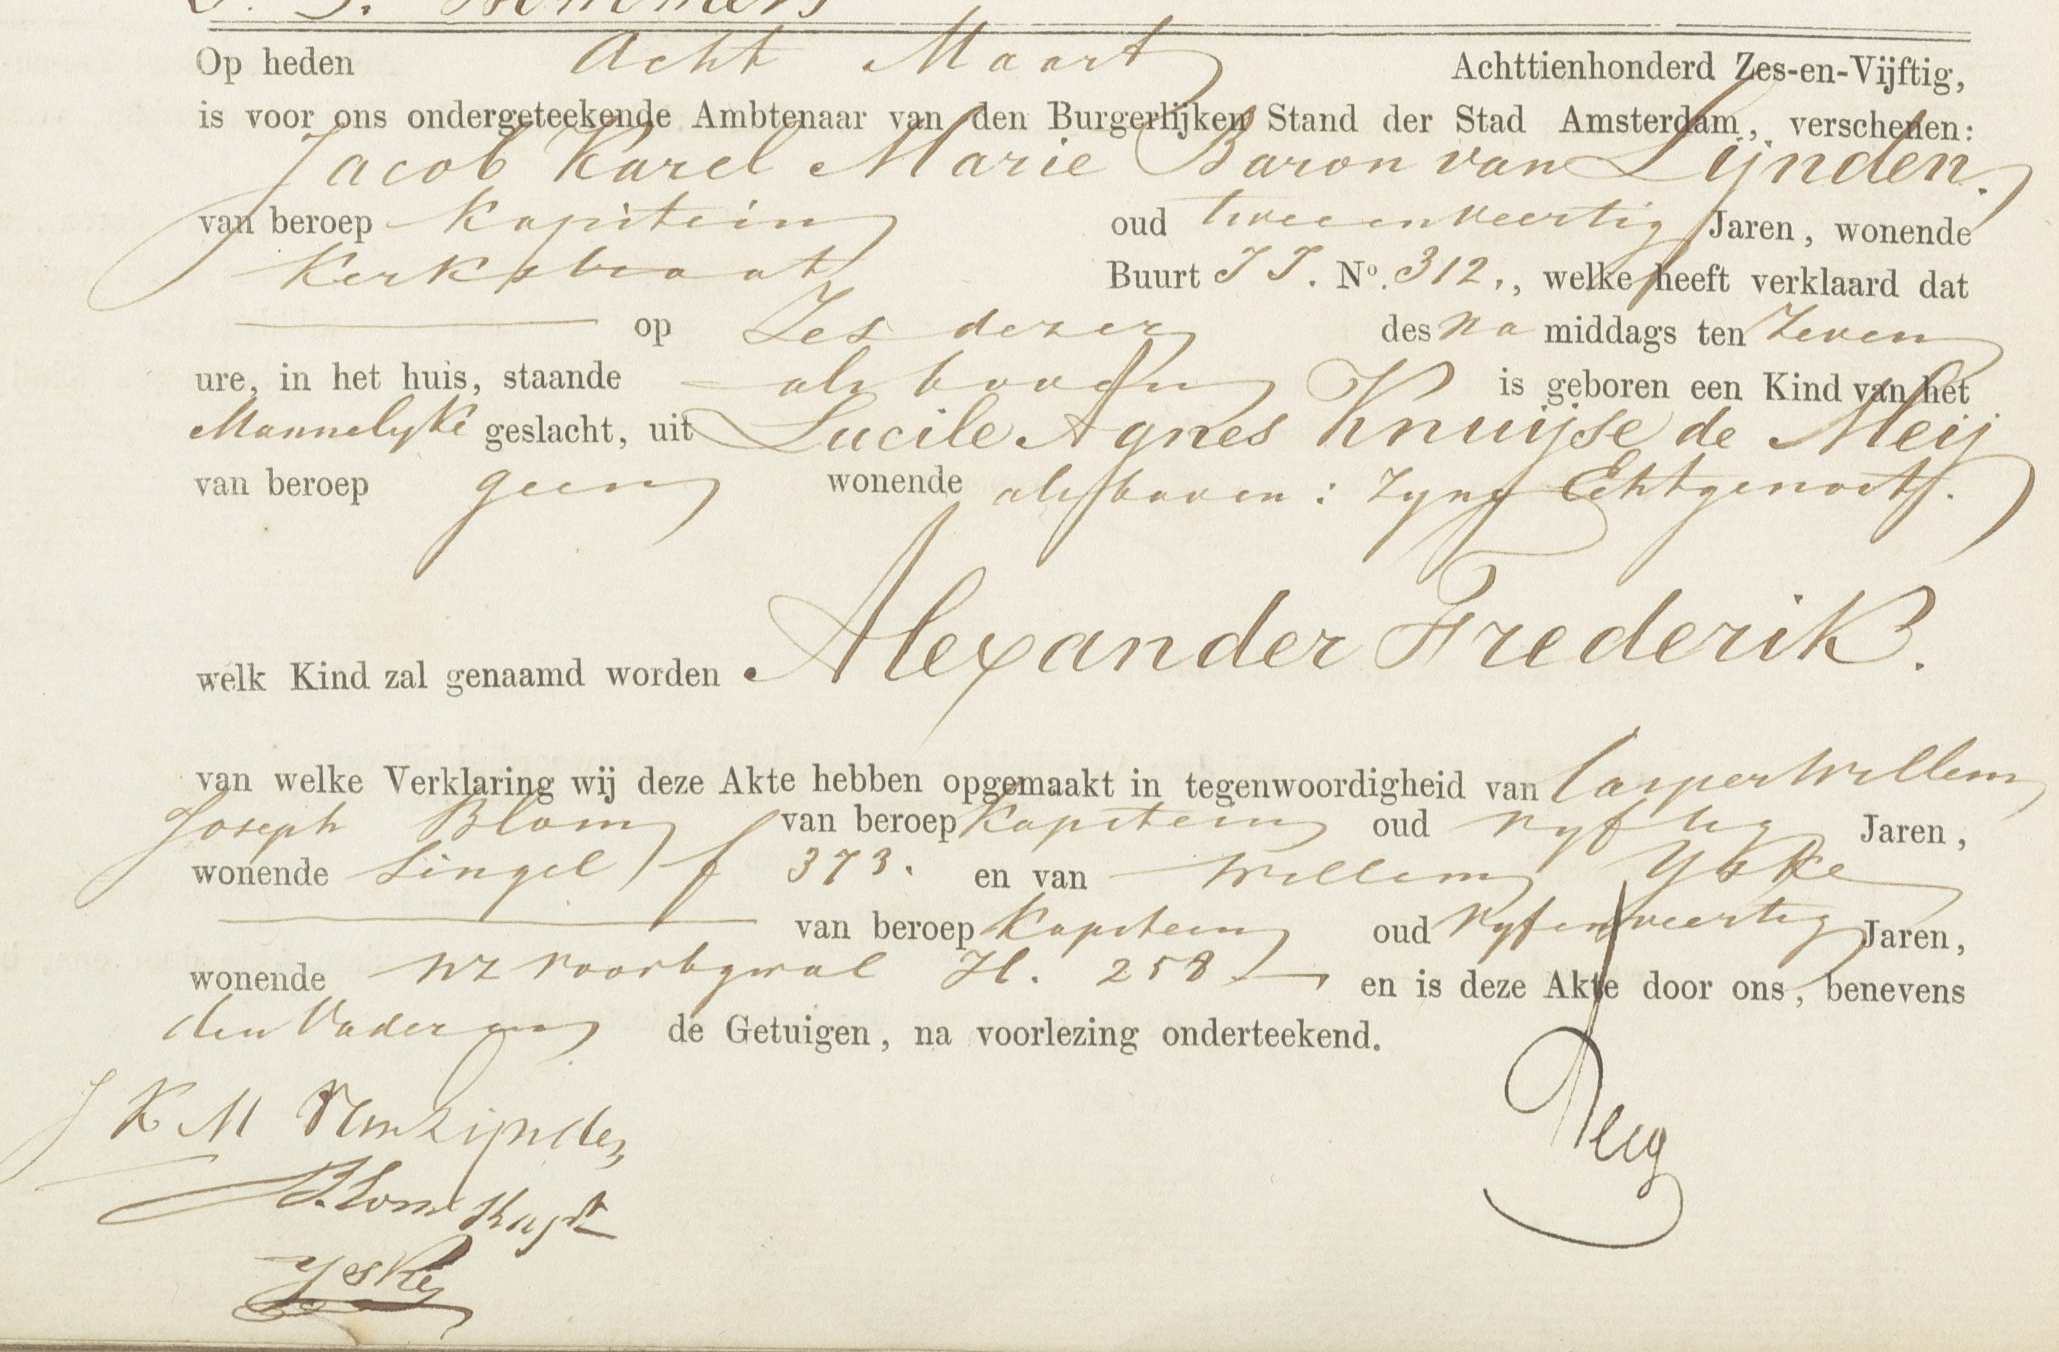 Op heden Acht Maart Achttienhonderd Zes-en-Vijftig,
is voor ons ondergeteekende Ambtenaar van den Burgerlijken Stand der Stad Amsterdam, verschenen:
Jacob Karel Marie Baron van Lijnden.
van beroep Kapitein oud tweeenveertig Jaren, wonende
Kerkstraat Buurt II. No. 312., welke heeft verklaard dat
op Zes dezer des na middags ten Zeven
ure, in het huis, staande als boven is geboren een Kind van het
Mannelyke geslacht, uit Lucile Agnes Knuijse de Meij
van beroep geen wonende als boven: Zyne Echtgenoote.
welk Kind zal genaamd worden Alexander Frederik.
van welke Verklaring wij deze Akte hebben opgemaakt in tegenwoordigheid van Casper Willem
Joseph Blom van beroep Kapitein oud vyftig Jaren,
wonende Singel 373. en van Willem Yske
van beroep Kapitein oud Vyfenveertig Jaren,
wonende NZ Voorbgwal H. 258 en is deze Akte door ons, benevens
den Vader en de Getuigen, na voorlezing onderteekend.
J K M Van Lijnden
Blom Kapt
Yske